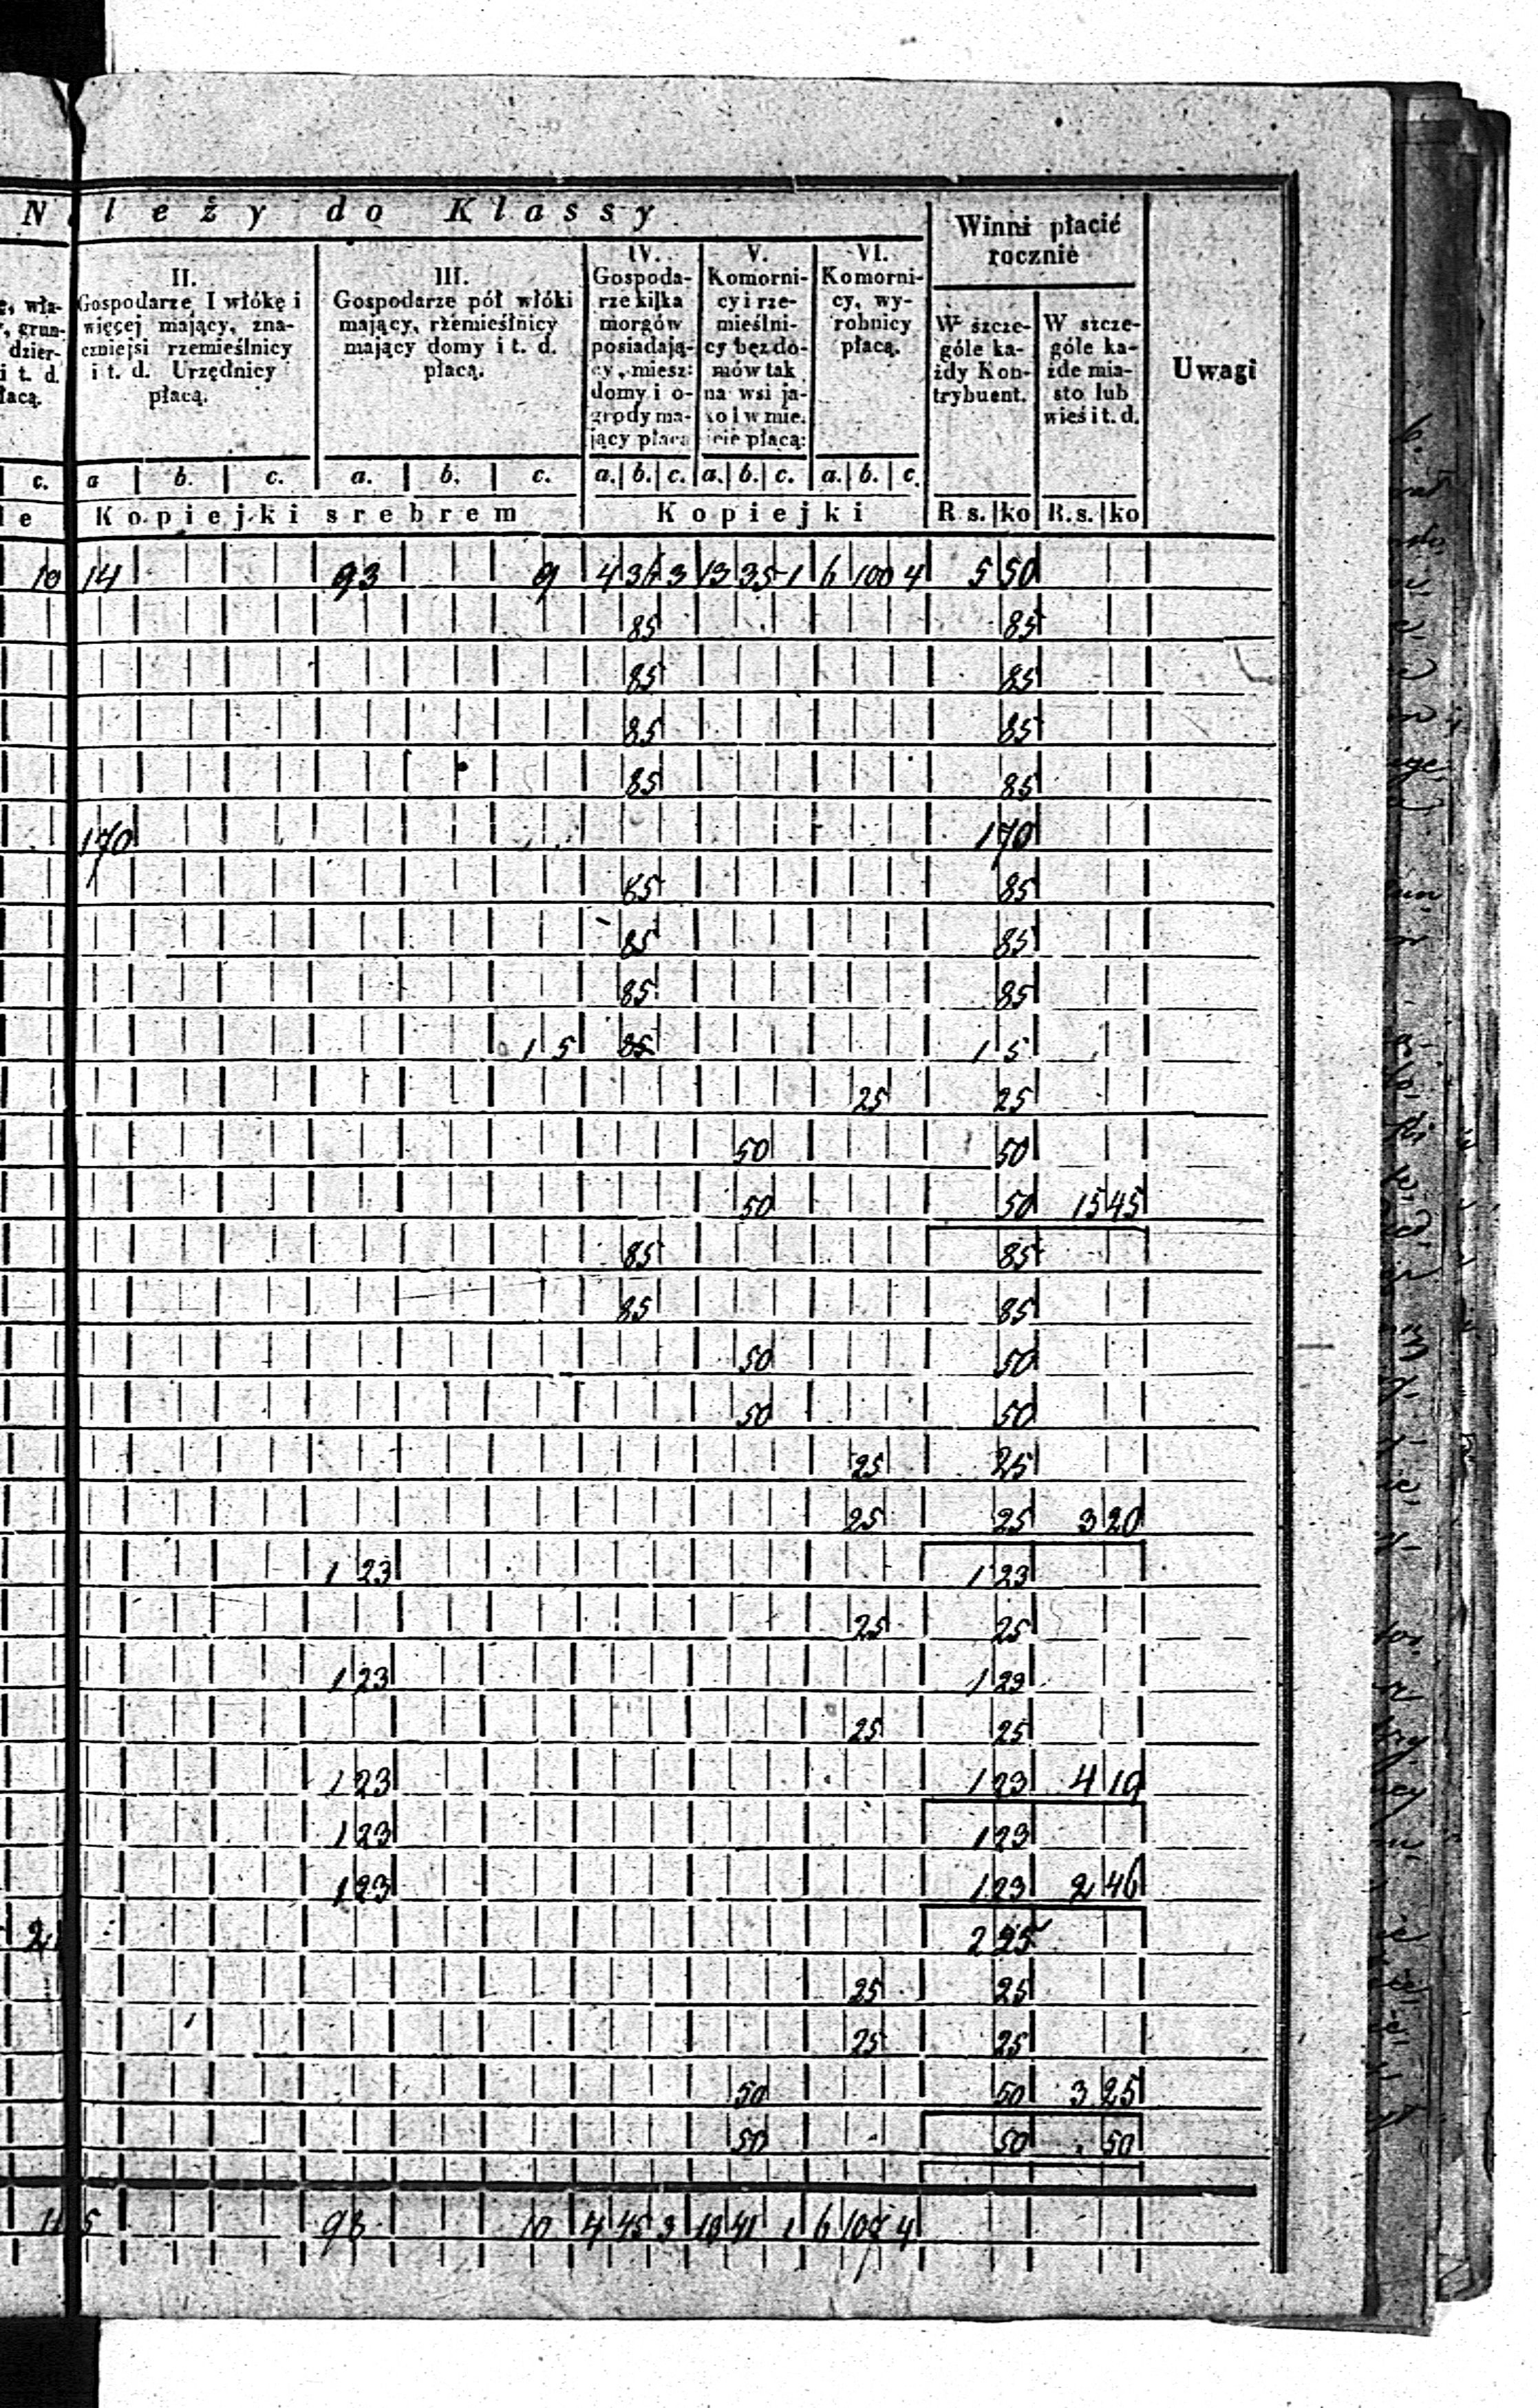 N leży do Klassy
Winni płacić rocznie
Uwagi
wła-
grun-
dzier-
i t. d.
łacą.
II.
Gospodarze I włókę i
więcej mający, zna-
czniejsi rzemieślnicy
i t. d. Urzędnicy
płacą.
III.
Gospodarze pół włóki
mający, rzemieślnicy
mający domy i t. d.
płacą.
IV.
Gospoda-
rze kilka
morgów
posiadają-
cy, miesz:
domy i o-
grody ma-
jący płacą
V.
Komorni-
cy i rze-
mieślni-
cy bez do-
mów tak
na wsi ja-
ko i w mie-
ście płacą:
VI.
Komorni-
cy, wy-
robnicy
płacą.
W szcze-
góle ka-
żdy Kon-
trybuent.
W szcze-
góle ka-
żde mia-
sto lub
wieś i t. d.
c. a b. c. a. b. c. a. b. c. a. b. c. a. b. c.
le Kopiejki srebrem Kopiejki R s. ko R. s. ko
10 14 93 9 4 3 13 35 1 6 100 4 5 50
85 85
85 85
85 85
85 85
170 170
85 85
85 85
85 85
1 5 85 1 5
25 25
50 50
50 50 15 45
85 85
85 85
50 50
50 50
25 25
25 25 3 20
1 23 1 23
25 25
1 23 1 23
25 25
1 23 1 23 4 19
1 23 1 23
1 23 1 23 2 46
2 2 25
25 25
25 25
50 50 3 25
50 50 50
11 5 98 10 4 45 3 13 41 1 6 104 4